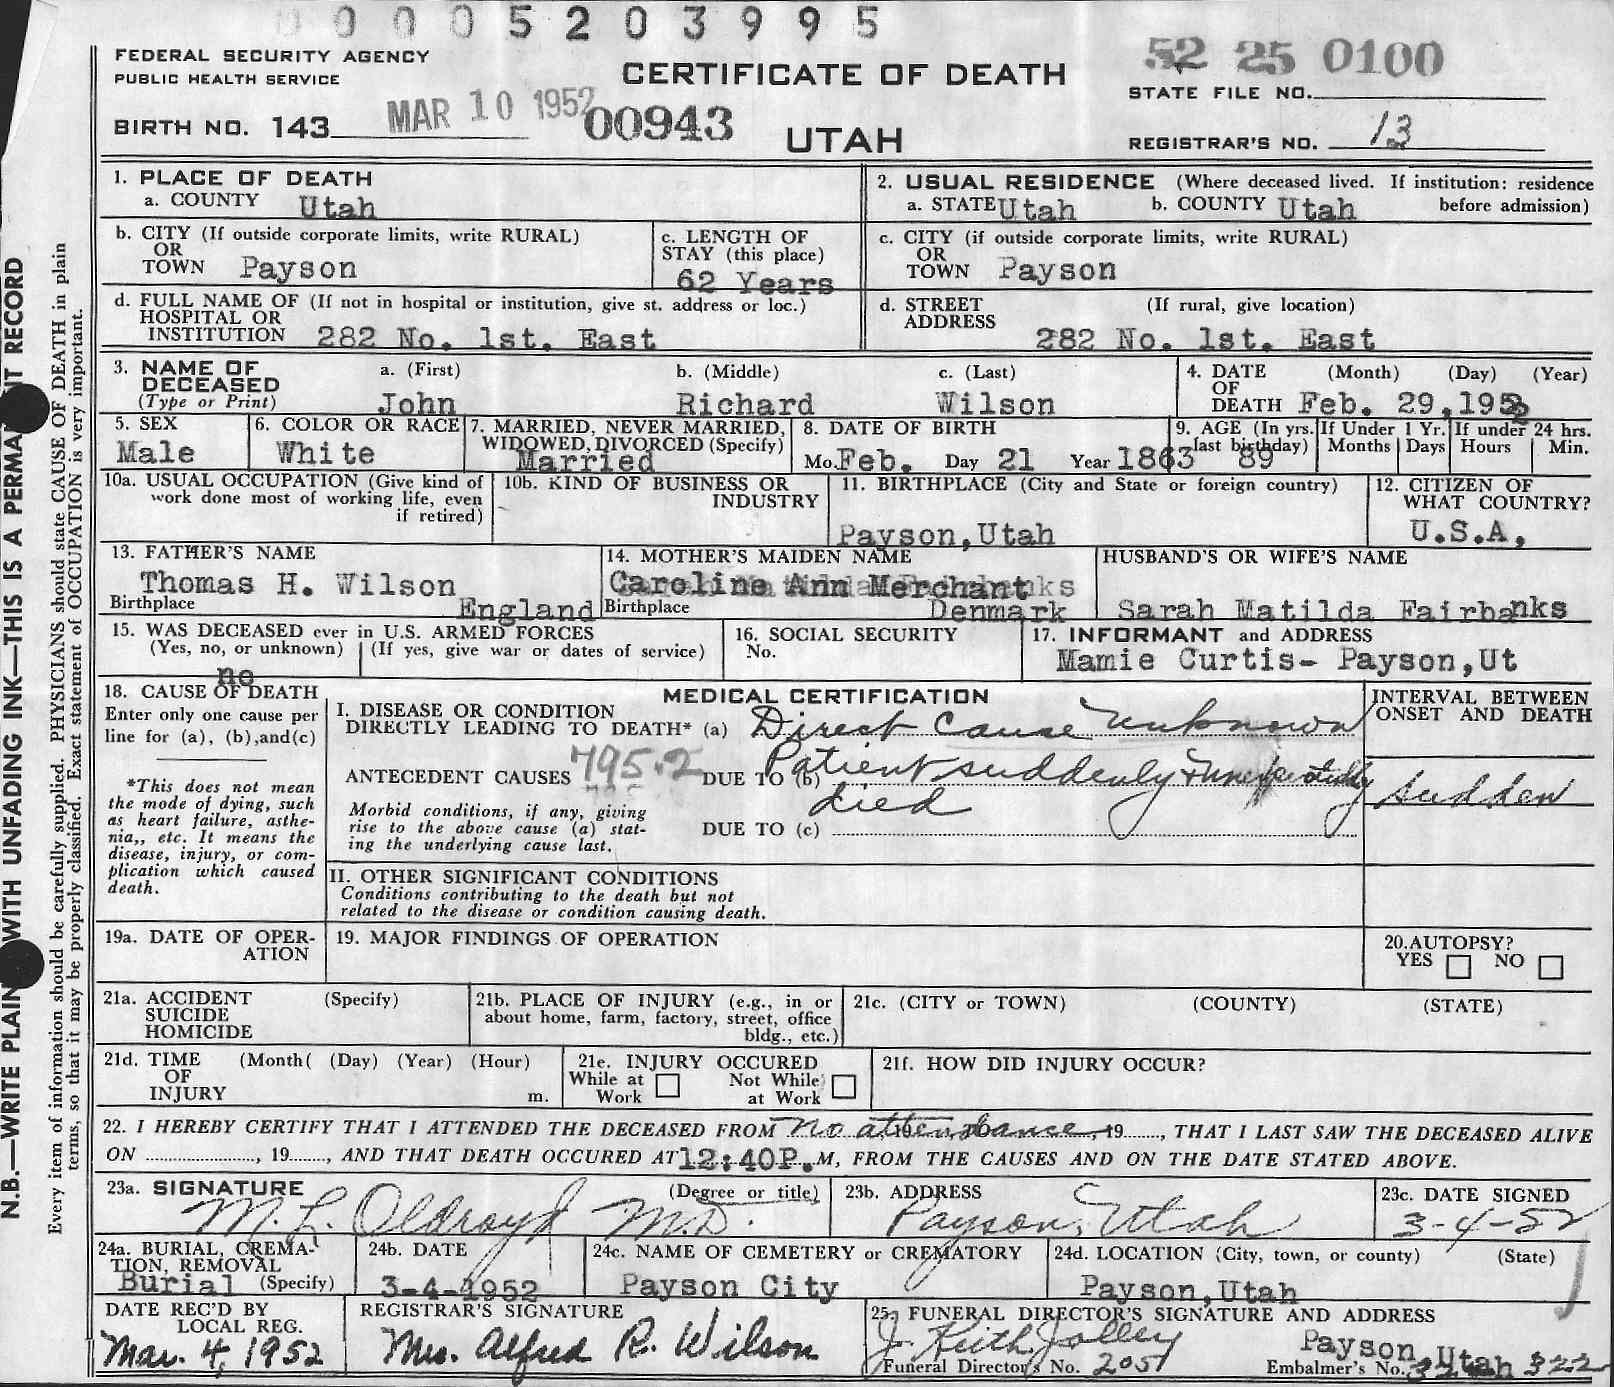 0 0 0 0 5 2 0 3 9 9 5
FEDERAL SECURITY AGENCY
PUBLIC HEALTH SERVICE
CERTIFICATE OF DEATH
52 25 0100
STATE FILE NO.
BIRTH NO. 143
MAR 10 1952
00943
UTAH
REGISTRAR'S NO. 13
1. PLACE OF DEATH
a. COUNTY Utah
2. USUAL RESIDENCE (Where deceased lived. If institution: residence
a. STATE Utah b. COUNTY Utah before admission)
b. CITY (If outside corporate limits, write RURAL)
OR
TOWN Payson
c. LENGTH OF
STAY (this place)
62 Years
c. CITY (if outside corporate limits, write RURAL)
OR
TOWN Payson
d. FULL NAME OF (If not in hospital or institution, give st. address or loc.)
HOSPITAL OR
INSTITUTION 282 No. 1st. East
d. STREET (If rural, give location)
ADDRESS
282 No. 1st. East
3. NAME OF DECEASED
(Type or Print)
a. (First) b. (Middle) c. (Last)
John Richard Wilson
4. DATE (Month) (Day) (Year)
OF
DEATH Feb. 29, 1952
5. SEX
Male
6. COLOR OR RACE
White
7. MARRIED, NEVER MARRIED,
WIDOWED, DIVORCED (Specify)
Married
8. DATE OF BIRTH
Mo. Feb. Day 21 Year 1863
9. AGE (In yrs.
last birthday)
89
If Under 1 Yr.
Months Days
If under 24 hrs.
Hours Min.
10a. USUAL OCCUPATION (Give kind of
work done most of working life, even
if retired)
10b. KIND OF BUSINESS OR
INDUSTRY
11. BIRTHPLACE (City and State or foreign country)
Payson, Utah
12. CITIZEN OF
WHAT COUNTRY?
U.S.A,
13. FATHER'S NAME
Thomas H. Wilson
Birthplace England
14. MOTHER'S MAIDEN NAME
Caroline Ann Merchant
Birthplace Denmark
HUSBAND'S OR WIFE'S NAME
Sarah Matilda Fairbanks
15. WAS DECEASED ever in U.S. ARMED FORCES
(Yes, no, or unknown) (If yes, give war or dates of service)
no
16. SOCIAL SECURITY
No.
17. INFORMANT and ADDRESS
Mamie Curtis- Payson, Ut
18. CAUSE OF DEATH
Enter only one cause per
line for (a), (b),and(c)
*This does not mean
the mode of dying, such
as heart failure, asthe-
nia,, etc. It means the
disease, injury, or com-
plication which caused
death.
MEDICAL CERTIFICATION
I. DISEASE OR CONDITION
DIRECTLY LEADING TO DEATH* (a) Direct Cause unknown
ANTECEDENT CAUSES 795.2 DUE TO (b) Patient suddenly & unexpectedly
died
Morbid conditions, if any, giving
rise to the above cause (a) stat-
ing the underlying cause last.
DUE TO (c)
INTERVAL BETWEEN
ONSET AND DEATH
sudden
II. OTHER SIGNIFICANT CONDITIONS
Conditions contributing to the death but not
related to the disease or condition causing death.
19a. DATE OF OPER-
ATION
19. MAJOR FINDINGS OF OPERATION
20. AUTOPSY?
YES NO
21a. ACCIDENT (Specify)
SUICIDE
HOMICIDE
21b. PLACE OF INJURY (e.g., in or
about home, farm, factory, street, office
bldg., etc.)
21c. (CITY or TOWN) (COUNTY) (STATE)
21d. TIME (Month( (Day) (Year) (Hour)
OF
INJURY m.
21e. INJURY OCCURED
While at Work
Not While at Work
21f. HOW DID INJURY OCCUR?
22. I HEREBY CERTIFY THAT I ATTENDED THE DECEASED FROM no attendance, 19......., THAT I LAST SAW THE DECEASED ALIVE
ON ................, 19......., AND THAT DEATH OCCURED AT 12:40P.M, FROM THE CAUSES AND ON THE DATE STATED ABOVE.
23a. SIGNATURE (Degree or title)
M. L. Oldroyd M.D.
23b. ADDRESS
Payson, Utah
23c. DATE SIGNED
3-4-52
24a. BURIAL, CREMA-
TION, REMOVAL
Burial (Specify)
24b. DATE
3-4-1952
24c. NAME OF CEMETERY or CREMATORY
Payson City
24d. LOCATION (City, town, or county) (State)
Payson, Utah
DATE REC'D BY
LOCAL REG.
Mar. 4, 1952
REGISTRAR'S SIGNATURE
Mrs. Alfred R. Wilson
25. FUNERAL DIRECTOR'S SIGNATURE AND ADDRESS
J. Keith Jolley Payson, Utah
Funeral Director's No. 205 Embalmer's No. 322
N.B.—WRITE PLAIN WITH UNFADING INK—THIS IS A PERMA T RECORD
Every item of information should be carefully supplied. PHYSICIANS should state CAUSE OF DEATH in plain
terms, so that it may be properly classified. Exact statement of OCCUPATION is very important.